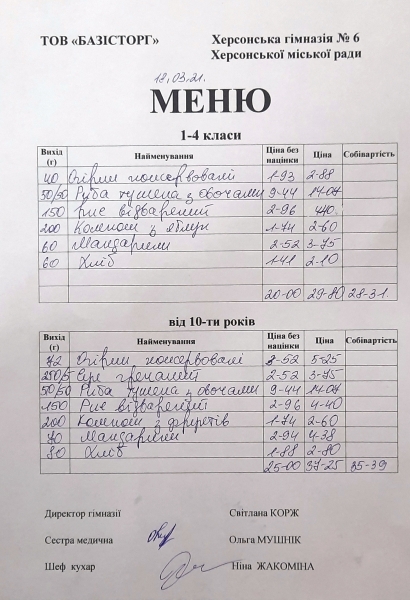 ТОВ «БАЗІСТОРГ» Херсонська гімназія № 6
Херсонської міської ради
18.03.21.
МЕНЮ
1-4 класи
Вихід (г) Найменування Ціна без націнки Ціна Собівартість
40 Огірки консервовані 1-93 2-88
50/50 Риба тушена з овочами 9-44 14-07
150 Рис відварений 2-96 4-40
200 Компот з яблук 1-74 2-60
60 Мандарини 2-52 3-75
60 Хліб 1-41 2-10
20-00 29-80 28-31
від 10-ти років
Вихід (г) Найменування Ціна без націнки Ціна Собівартість
72 Огірки консервовані 3-52 5-25
250/5 гречаний 2-52 3-75
50/50 Риба тушена з овочами 9-44 14-07
150 Рис відварений 2-96 4-40
200 Компот з фруктів 1-74 2-60
70 Мандарини 2-94 4-38
80 Хліб 1-88 2-80
25-00 37-25 35-39
Директор гімназії Світлана КОРЖ
Сестра медична Ольга МУШНІК
Шеф кухар Ніна ЖАКОМІНА